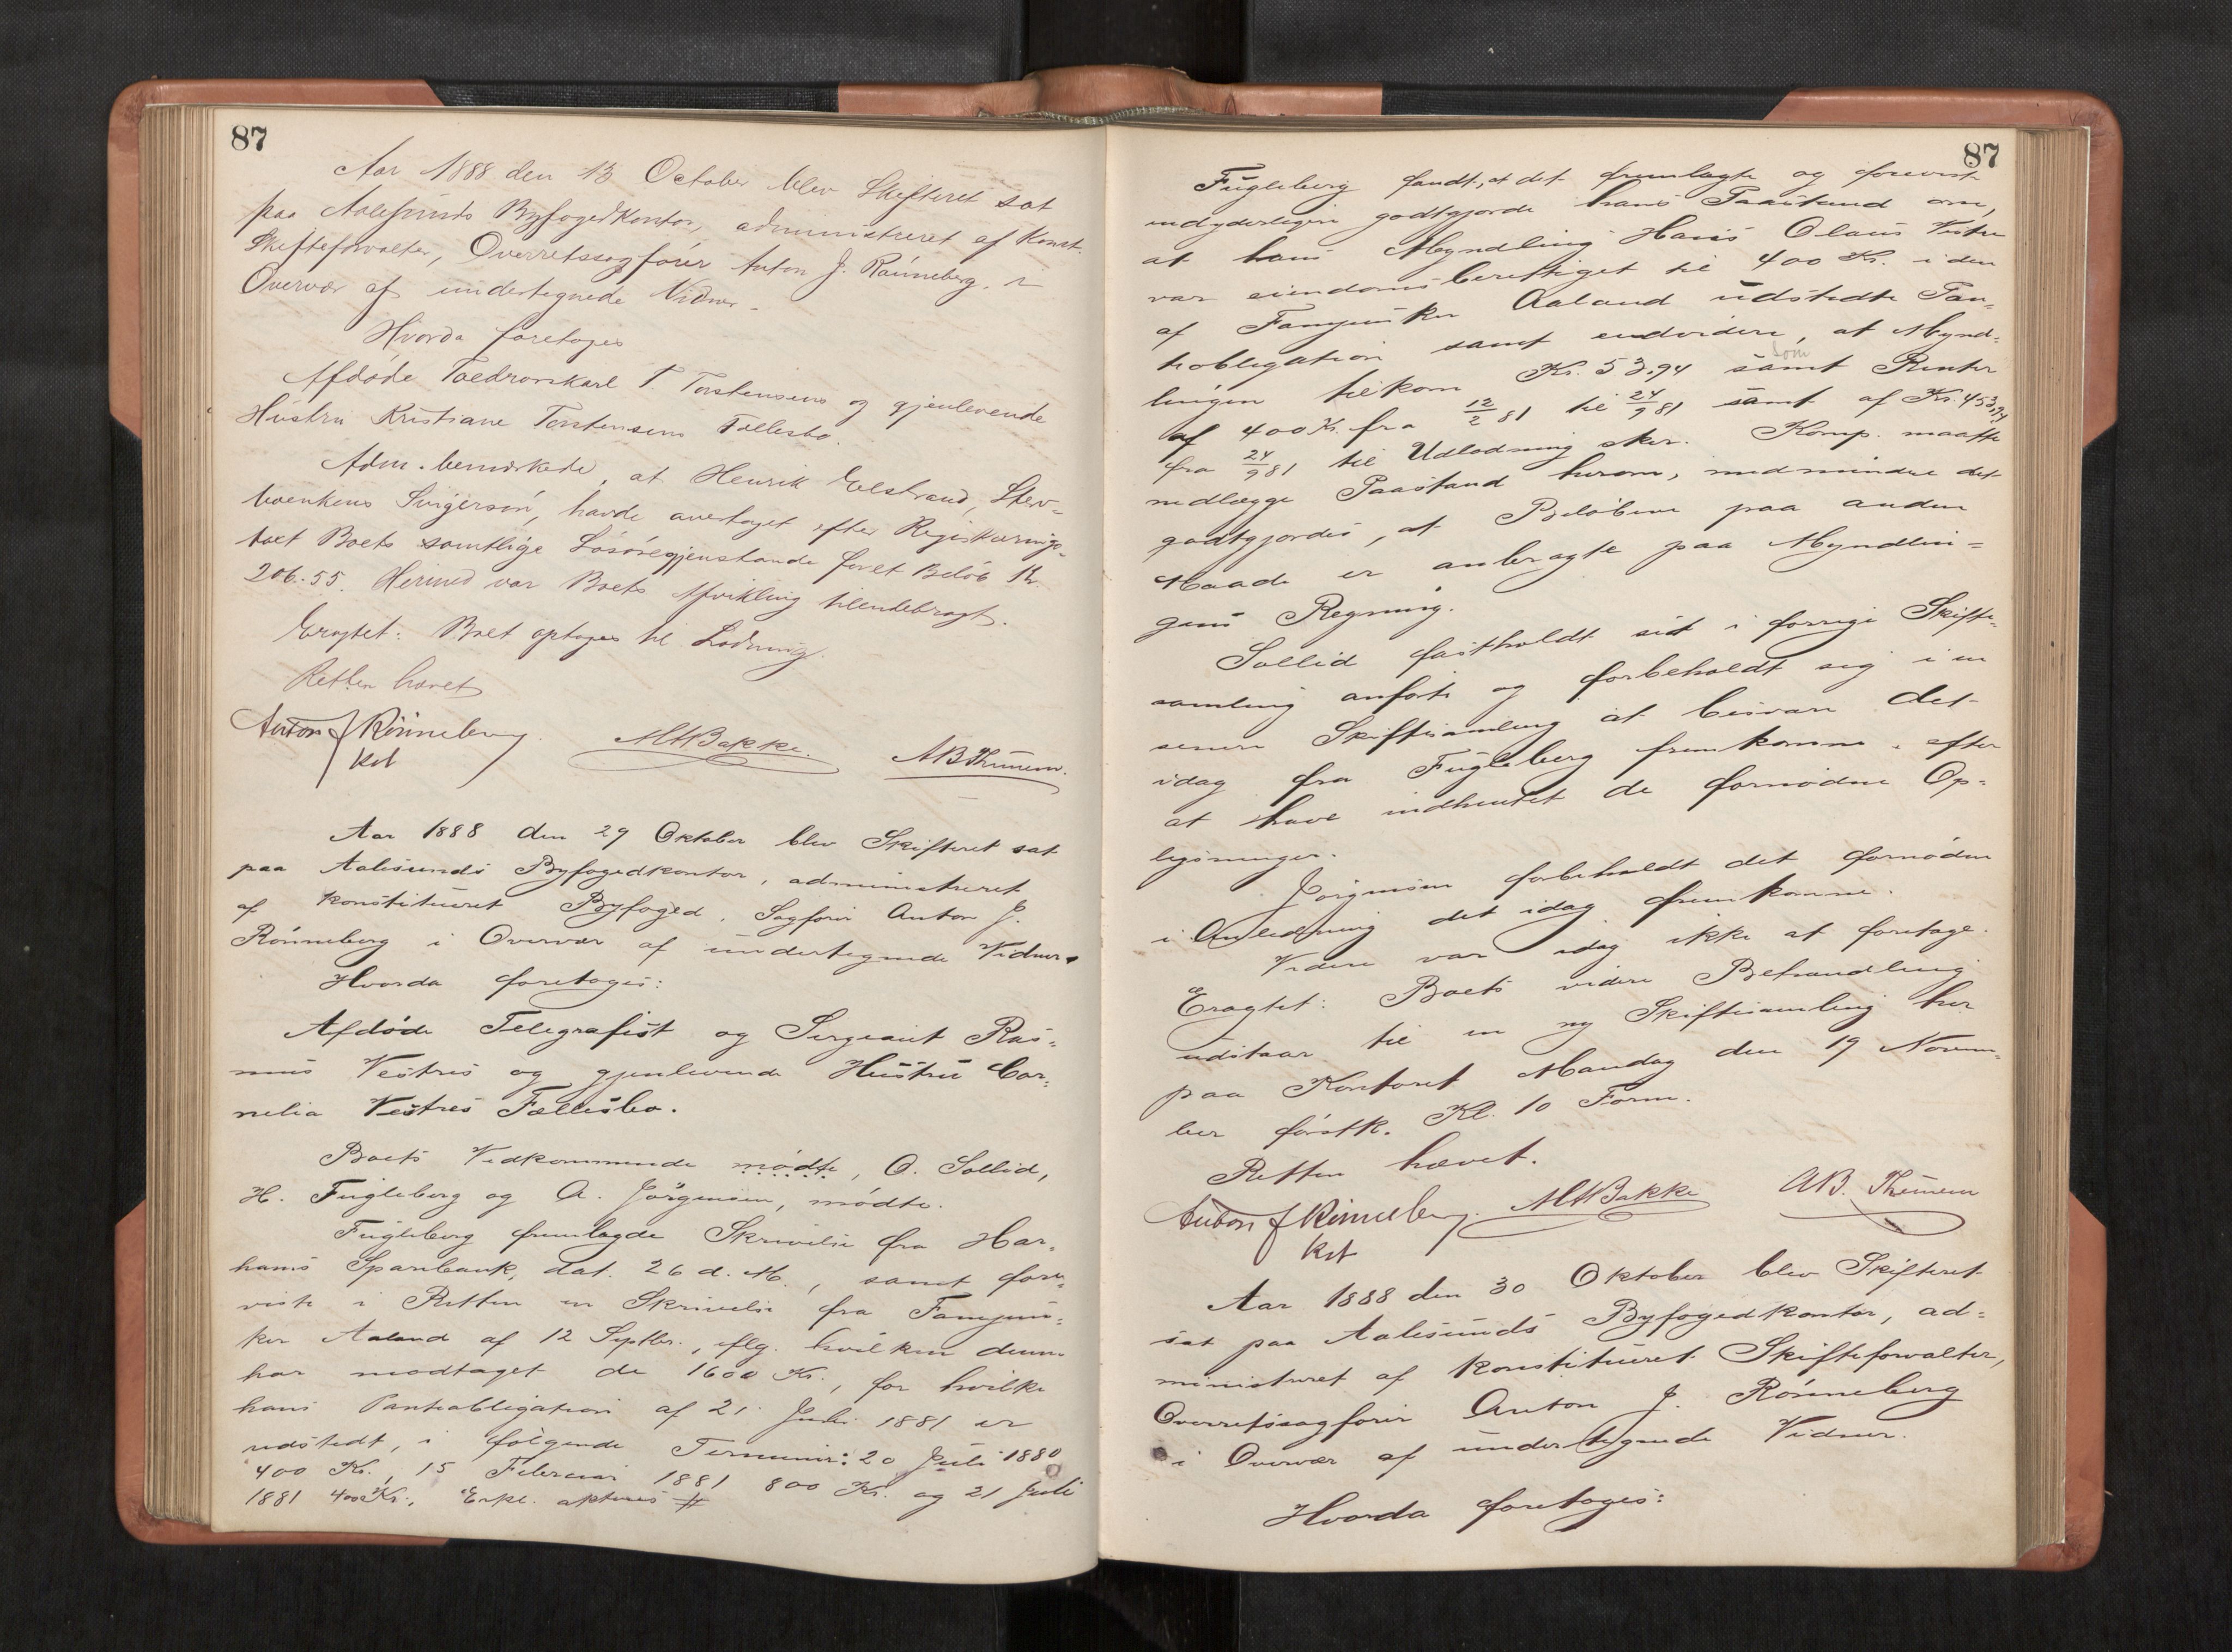 87
Aar 1888 den 13 October blev Skifteret sat
paa Aalesunds Byfogedkontor, administreret af Konst.
Skifteforvalter, Overretssagfører Anton J. Rønneberg, i
Overvær af undertegnede Vidner.
Hvorda foretoges
Afdøde Toldrorskarl T Torstensens og gjenlevende
Hustru Kristiane Torstensens Fællesbo.
Adm. bemærkede, at Henrik Elstrand, Sterv-
boenkens Svigersøn, havde overtaget efter Registrerings-
taxt Boets samtlige Løsøregjenstande for et Beløb Kr.
206.55. Hermed var Boets Afvikling tilendebragt.
Eragtet: Boet optages til Lodning.
Retten hævet
Anton J Rønneberg. MABakke. ABThunem.
kst
Aar 1888 den 29 Oktober blev Skifteret sat
paa Aalesunds Byfogedkontor, administreret
af konstitueret Byfoged, Sagfører Anton J.
Rønneberg i Overvær af undertegnede Vidner.
Hvorda foretoges:
Afdøde Telegrafist og Sergeant Ras-
mus Vestres og gjenlevende Hustru Cor-
nelia Vestres Fællesbo.
Boets Vedkommende mødte, O. Sollid,
H. Fugleberg og A. Jørgensen, mødte.
Fugleberg fremlagde Skrivelse fra Har-
hams Sparebank, dat. 26 d. M., samt fore-
viste i Retten en Skrivelse fra Fanejun-
ker Aaland af 12 Septbr., iflg. hvilken denne
har modtaget de 1600 Kr., for hvilke
hans Panteobligation af 21 Juli 1881 er
udstedt, i følgende Terminer: 20 Juli 1880
400 Kr., 15 Februar 1881 800 Kr. og 21 Juli
1881 400 Kr., Erkl. akteres #
87
Fugleberg fandt, at det fremlagte og foreviste
yderligere godtgjorde hans Paastand om,
at hans Myndling Hans Olaus Vestre
var eiendomsberettiget til 400 Kr. i den
af Fanejunker Aaland udstedte Pan-
teobligation samt endvidere, at Mynd-
lingen tilkom Kr. 53,94 samt Renter
som
af 400 Kr. fra 12/2 81 til 24/9 81 samt af Kr. 453,94
fra 24/9 81 til Udlodning sker. Komp. maatte
nedlægge Paastand herom, medmindre det
godtgjordes, at Beløbene paa anden
Maade er anbragte paa Myndlin-
gens Regning.
Sollid fastholdt sit i forrige Skifte-
samling anførte og forbeholdt sig i en
senere Skiftesamling at besvare det
idag fra Fugleberg fremkomne, efter
at have indhentet de fornødne Op-
lysninger.
Jørgensen forbeholdt det fornødne
i Anledning det idag fremkomne.
Videre var idag ikke at foretage.
Eragtet: Boets videre Behandling
udstaar til en ny Skiftesamling her
paa Kontoret Mandag den 19 Novem-
ber førstk. Kl. 10 Form.
Retten hævet.
Anton J Rønneberg. MABakke AB. Thunem
kst
Aar 1888 den 30 Oktober blev Skifteret
sat paa Aalesunds Byfogedkontor, ad-
ministreret af konstitueret Skifteforvalter,
Overretssagfører Anton J. Rønneberg
i Overvær af undertegnede Vidner.
Hvorda foretoges: